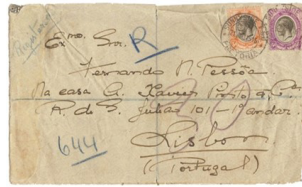 Registered
Exmo. Snr. R
Fernando N. Pessôa
Na casa A. Xavier Pinto & Ca
R. do S. Julião 101-1º andar
644
Lisbon
(Portugal)